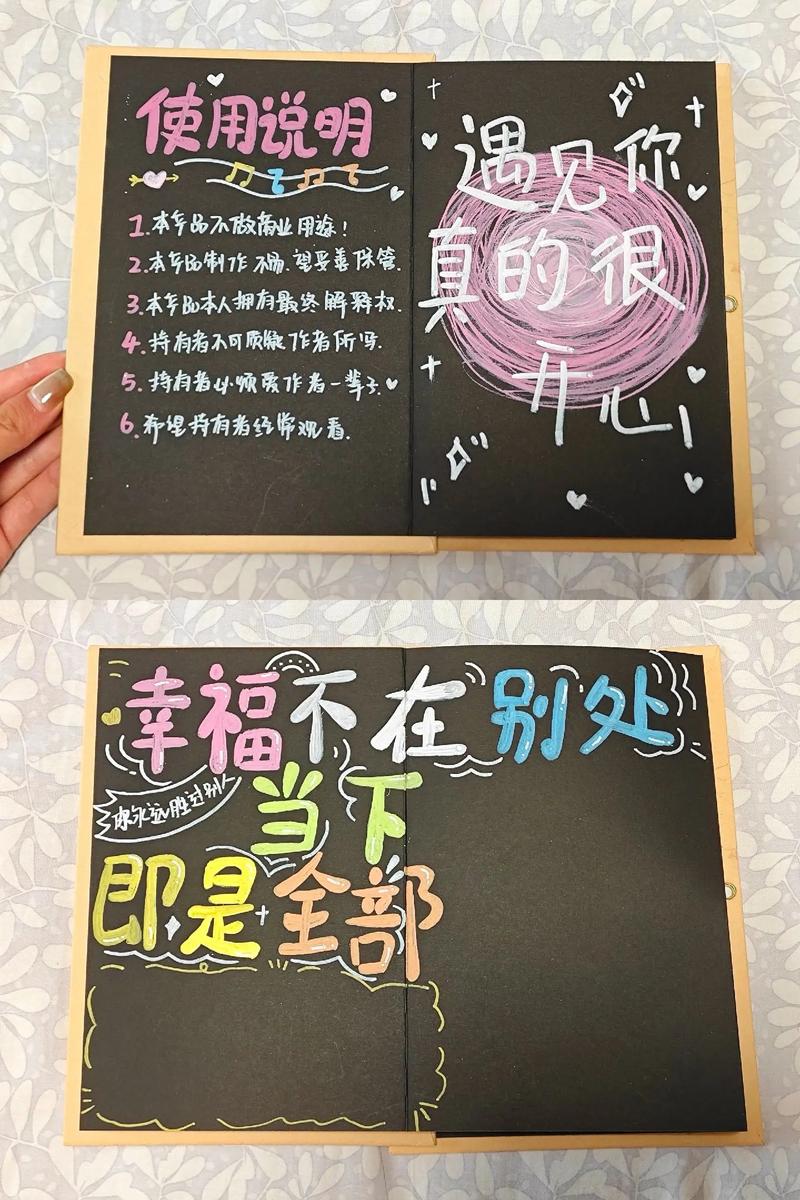 使用说明
1.本产品不做商业用途!
2.本产品制作不易.望妥善保管.
3.本产品本人拥有最终解释权.
4.持有者不可质疑作者所写.
5.持有者必须爱作者一辈子.
6.希望持有者经常观看.
遇见你
真的很
开心
幸福不在别处
当下
你永远胜过别人
即是全部